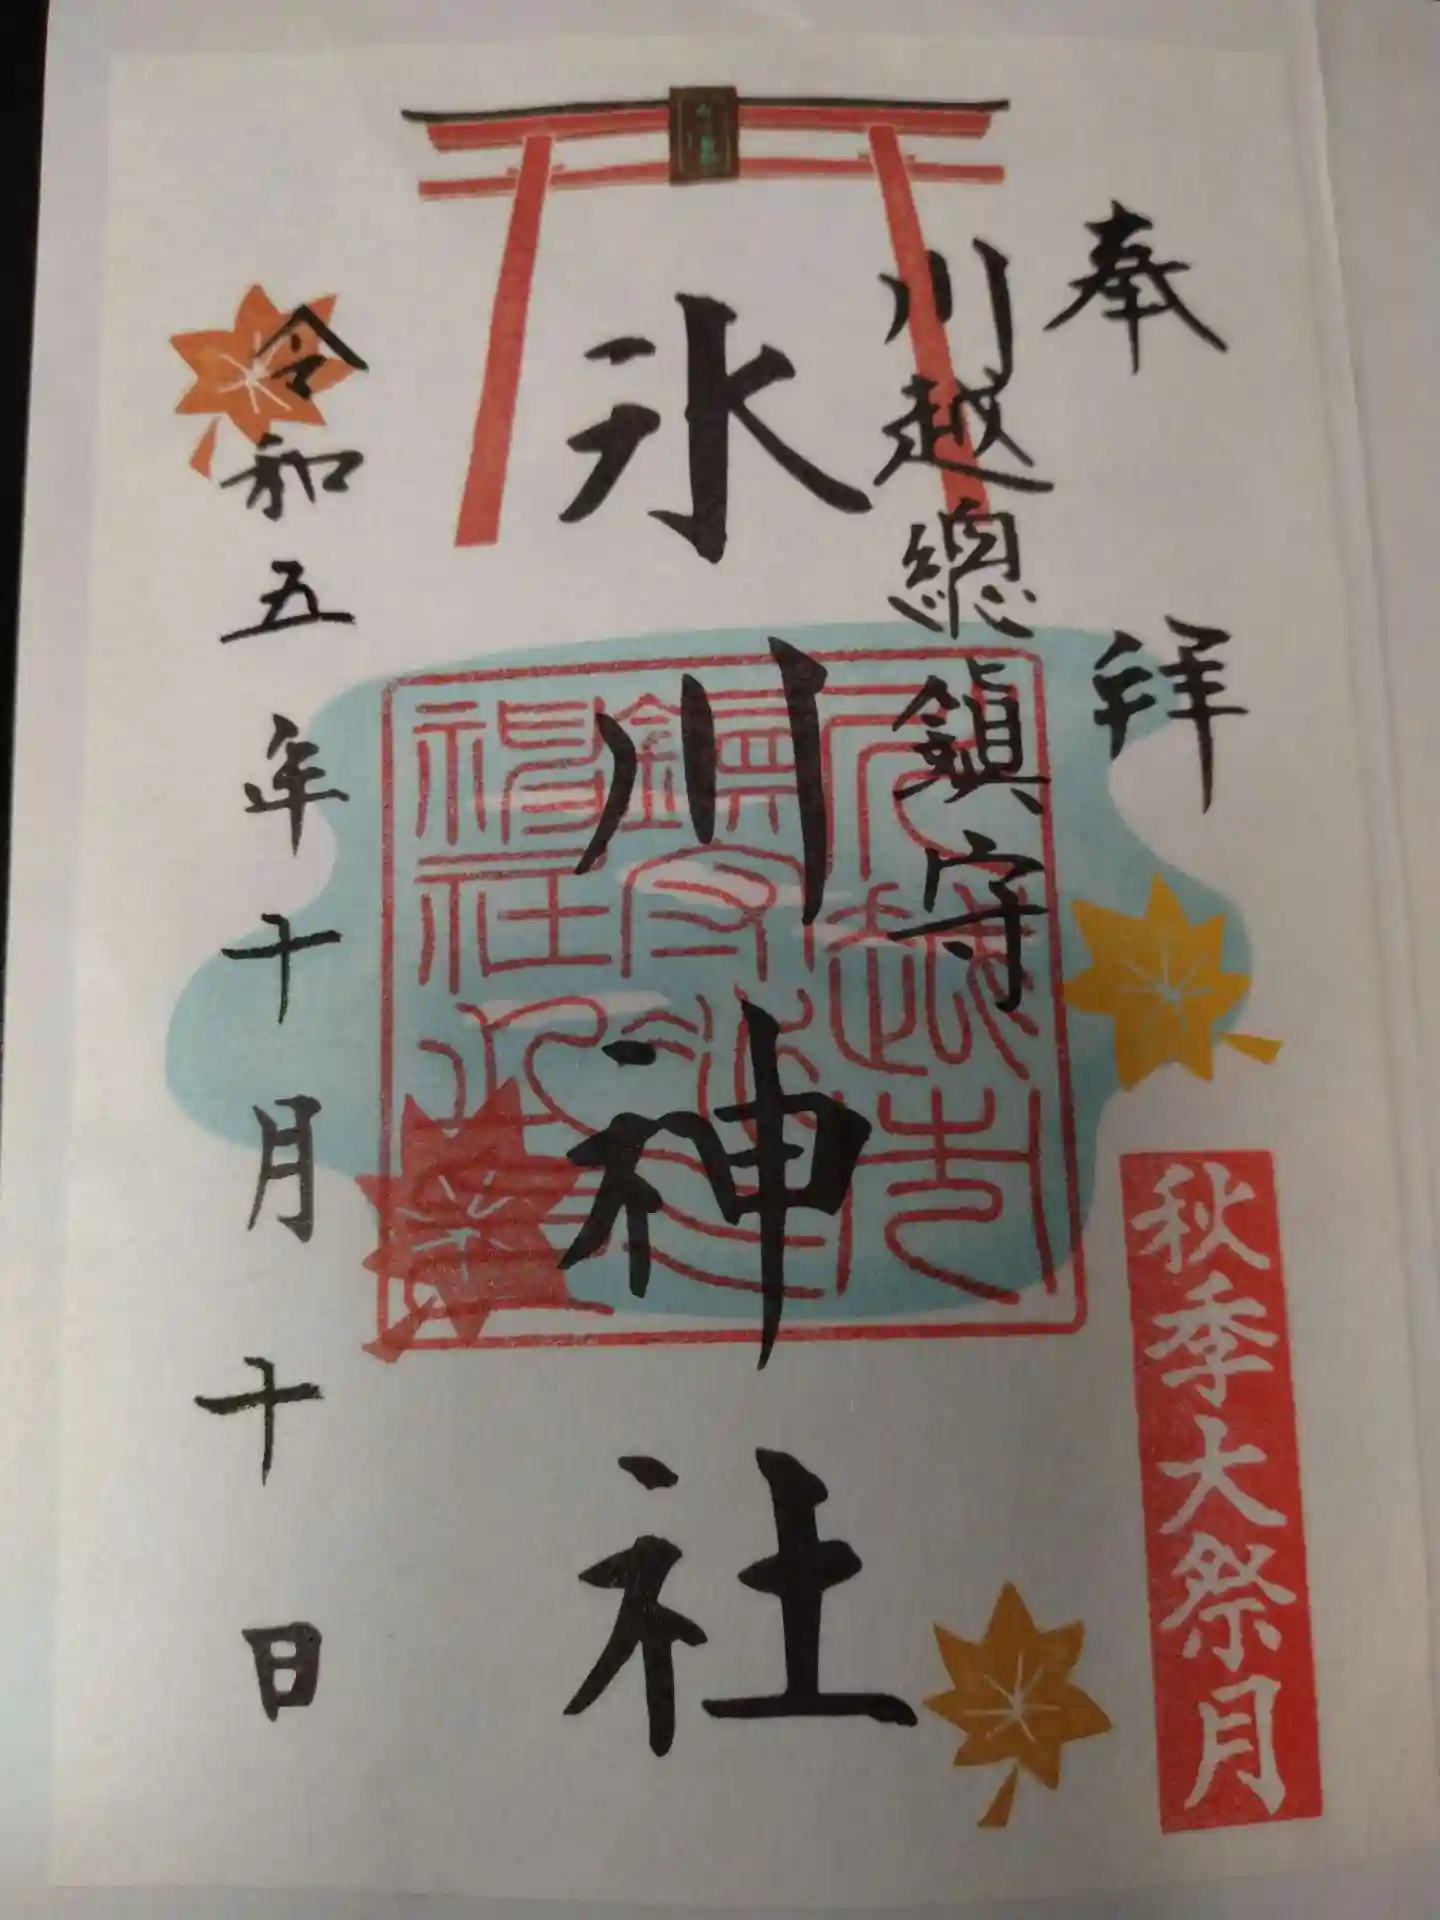 奉拜
川越總鎮守
氷川神社
令和五年十月十日
秋季大祭月